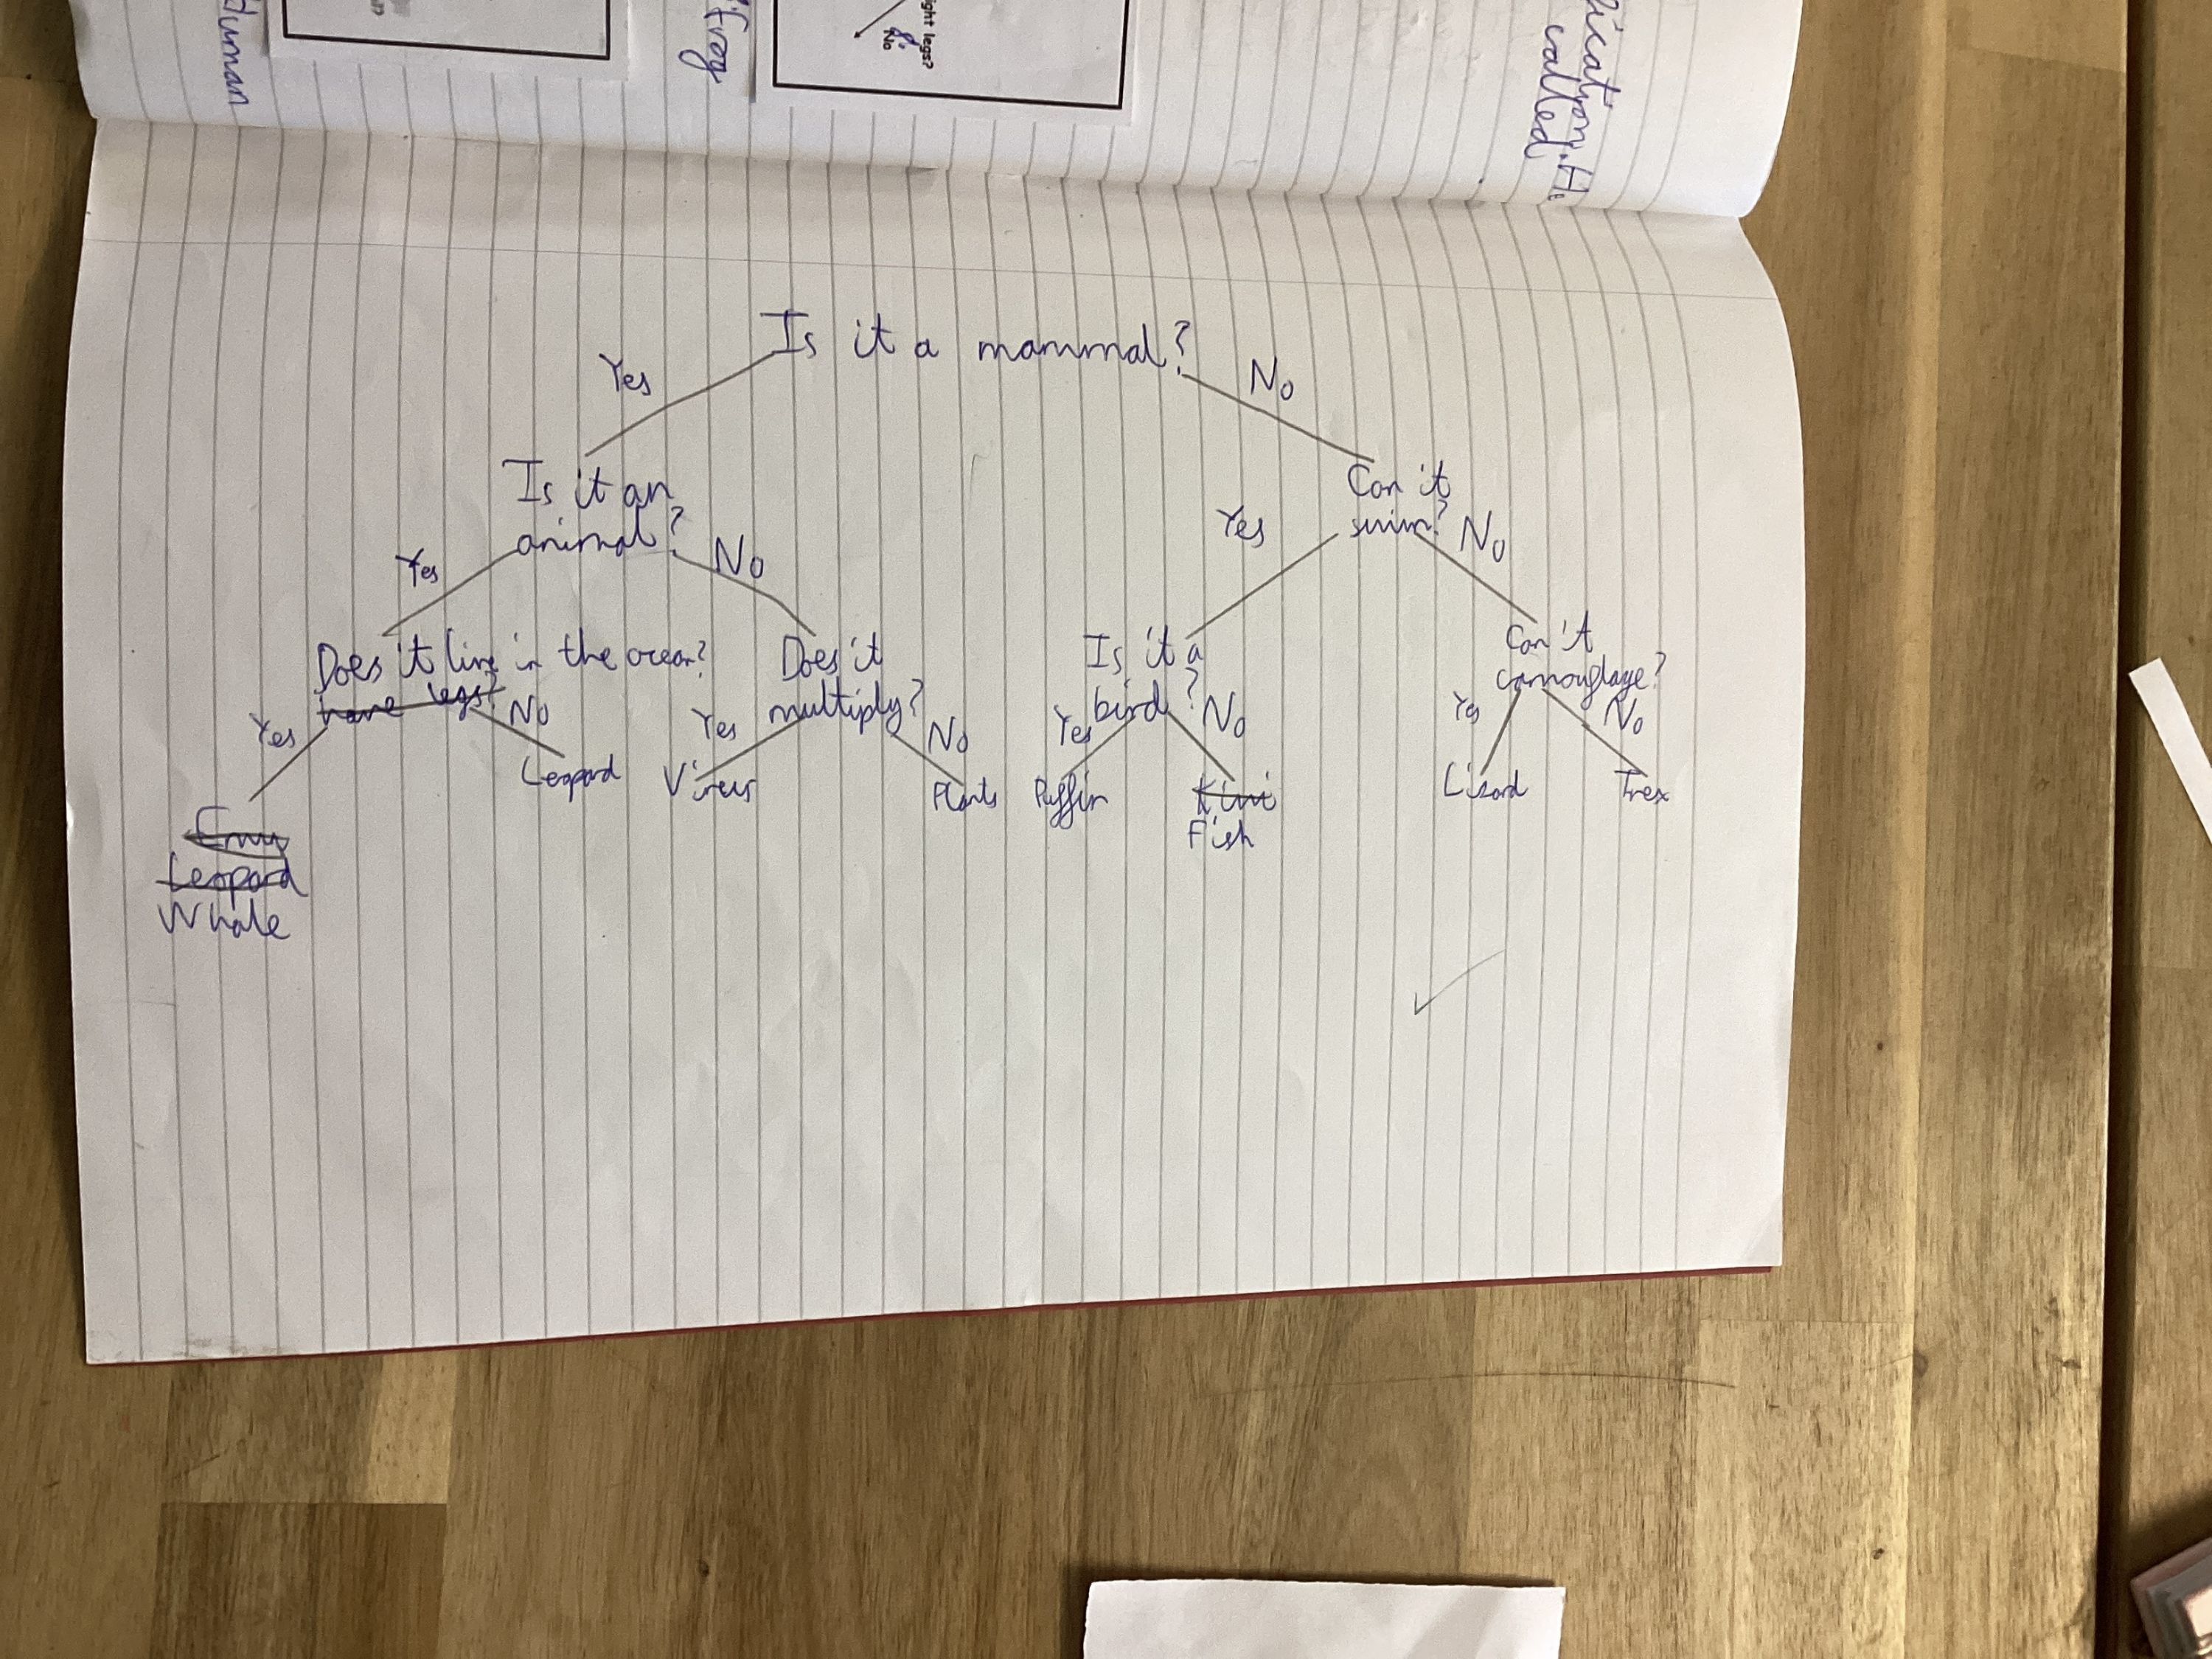 Human
Frog
ight legs?
No
ication. H
called
Is it a mammal?
Yes
No
Is it an
animal?
Can it
swim?
Yes
No
Yes
No
Does it live in the ocean?
have legs?
Does it
multiply?
Is it a
bird?
Can it
camouflage?
Yes
No
Yes
No
Yes
No
Yes
No
Leopard
Virus
Plants
Puffin
Kiwi
Fish
Lizard
Trex
Emu
Leopard
Whale